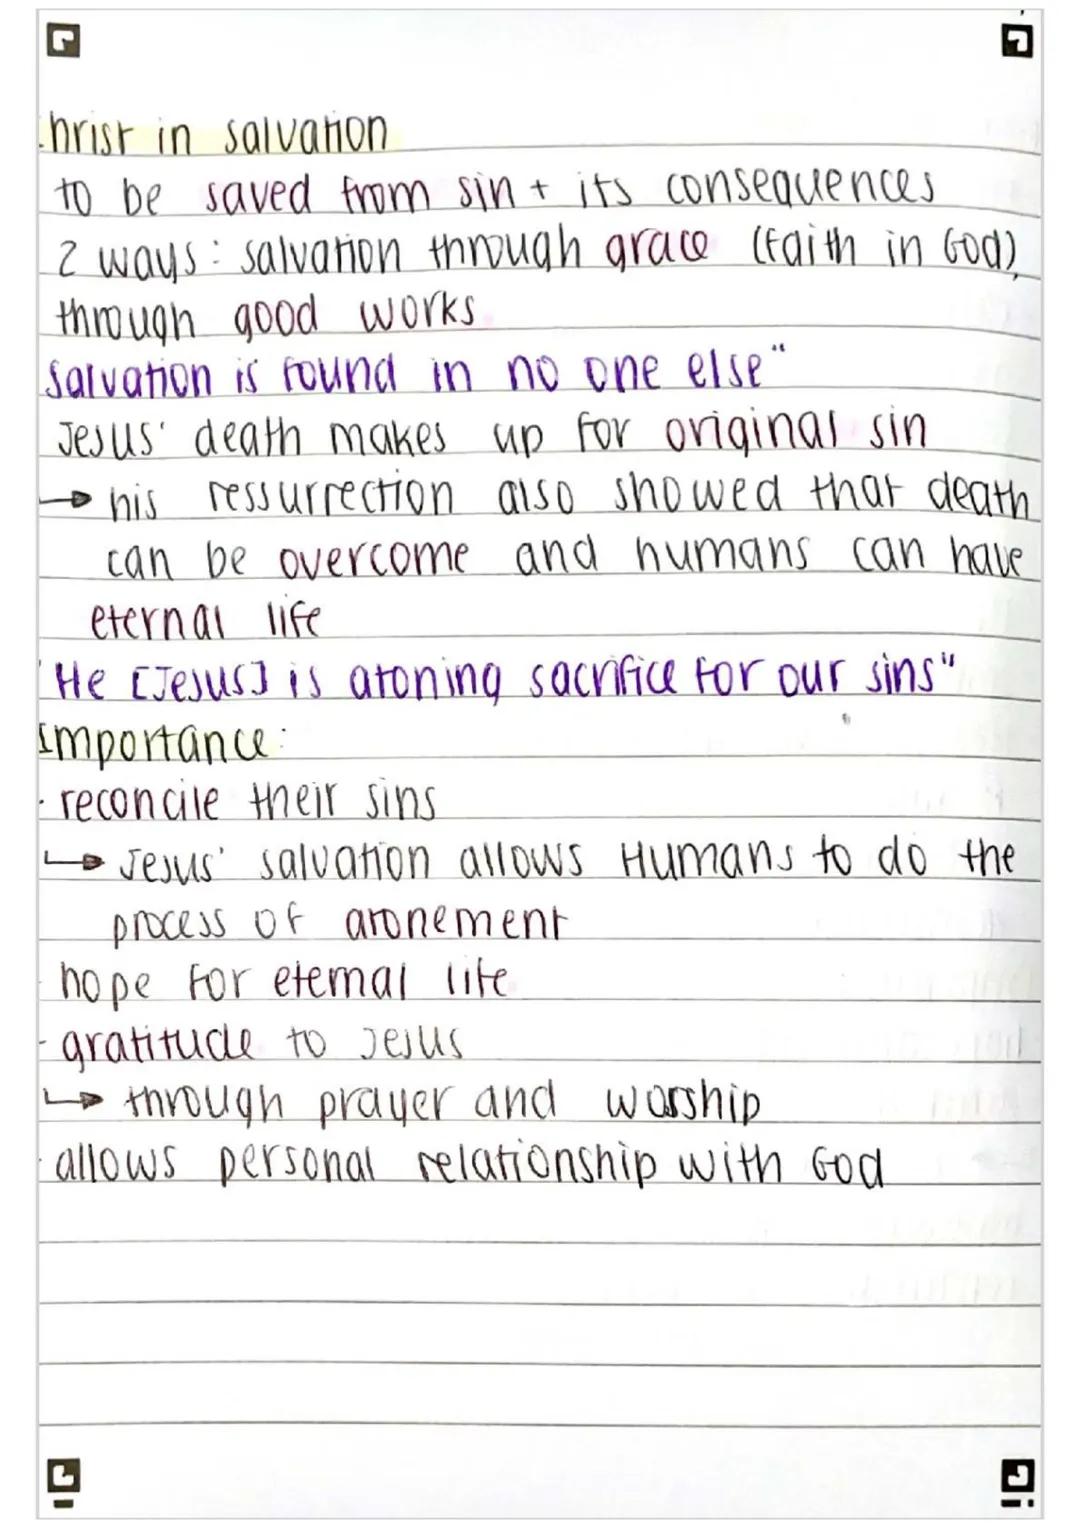 hrist in salvation
to be saved from sin + its consequences
2 ways: salvation through grace (faith in God),
through good works
salvation is found in no one else"
Jesus' death makes up for original sin
→ his ressurrection also showed that death
can be overcome and humans can have
eternal life
"He [Jesus] is atoning sacrifice for our sins"
Importance:
· reconcile their sins
↳ Jesus' salvation allows Humans to do the
process of atonement
hope for eternal life
- gratitude to Jesus
↳ through prayer and worship
· allows personal relationship with God